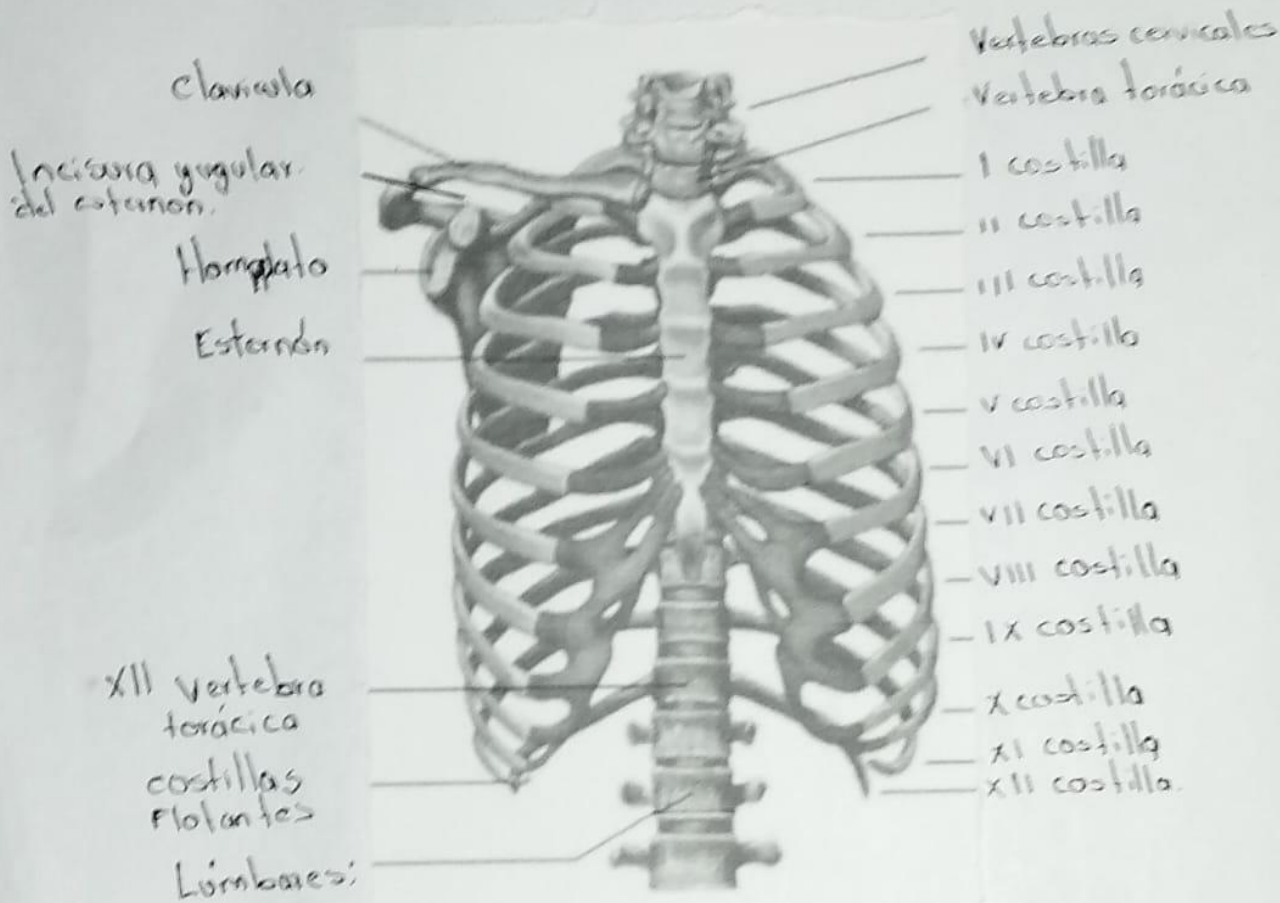 Clavicula
Incisura yugular
del esternon.
Homoplato
Esternón
XII vertebra
torácica
costillas
Flotantes
Lúmbares;
Vertebras cervicales
Vertebra torácica
I costilla
II costilla
III costilla
IV costilla
V costilla
VI costilla
VII costilla
VIII costilla
IX costilla
X costilla
XI costilla
XII costilla.